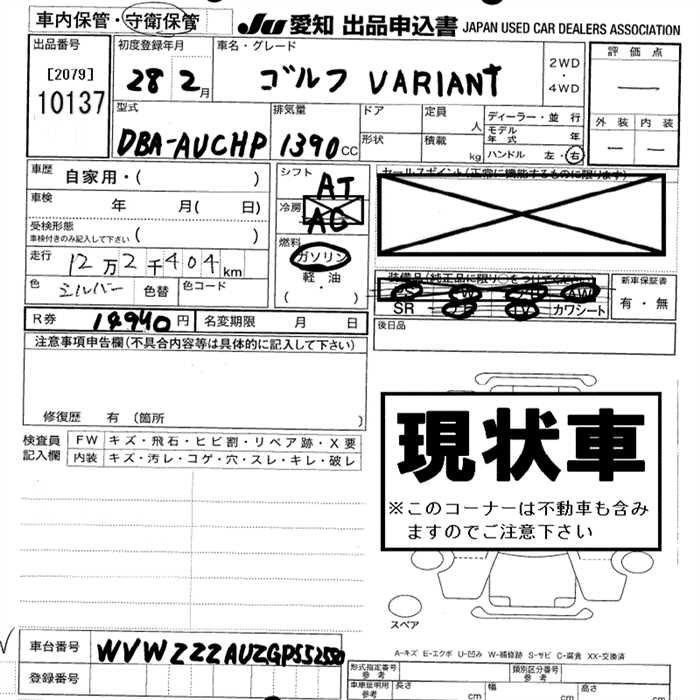 車内保管・守衛保管
JU 愛知 出品申込書 JAPAN USED CAR DEALERS ASSOCIATION
出品番号
[2079]
10137
初度登録年月
28 2月
車名・グレード
ゴルフ VARIANT
2WD
・
4WD
評価点
—
外装 内装
— —
型式
DBA-AUCHP
排気量
1390cc
ドア
形状
定員
人
積載
kg
ディーラー・並行
モデル年式 年
ハンドル 左・右
車歴 自家用・( )
車検 年 月( 日)
受検形態
車検付きのみ記入して下さい ( )
走行 12万2千404km
色 シルバー 色替 色コード
シフト
AT
冷房
AC
燃料
ガソリン
軽油
(・ )
セールスポイント(正常に機能するものに限ります)
装備品(純正品に限り○をつけてください)
AW
SR TV カワシート
新車保証書
有・無
後日品
R券 14940円 名変期限 月 日
注意事項申告欄(不具合内容等は具体的に記入して下さい)
修復歴 有 (箇所 )
検査員記入欄
FW キズ・飛石・ヒビ割・リペア跡・X要
内装 キズ・汚レ・コゲ・穴・スレ・キレ・破レ
現状車
※このコーナーは不動車も含み
ますのでご注意下さい
スペア
A-キズ E-エクボ U-凹み W-補修跡 S-サビ C-腐食 XX-交換済
車台番号 WVWZZZAUZGP552550
登録番号
形式指定番号
参考
類別区分番号
参考
車庫証明用
参考
長さ cm 幅 cm 高さ cm